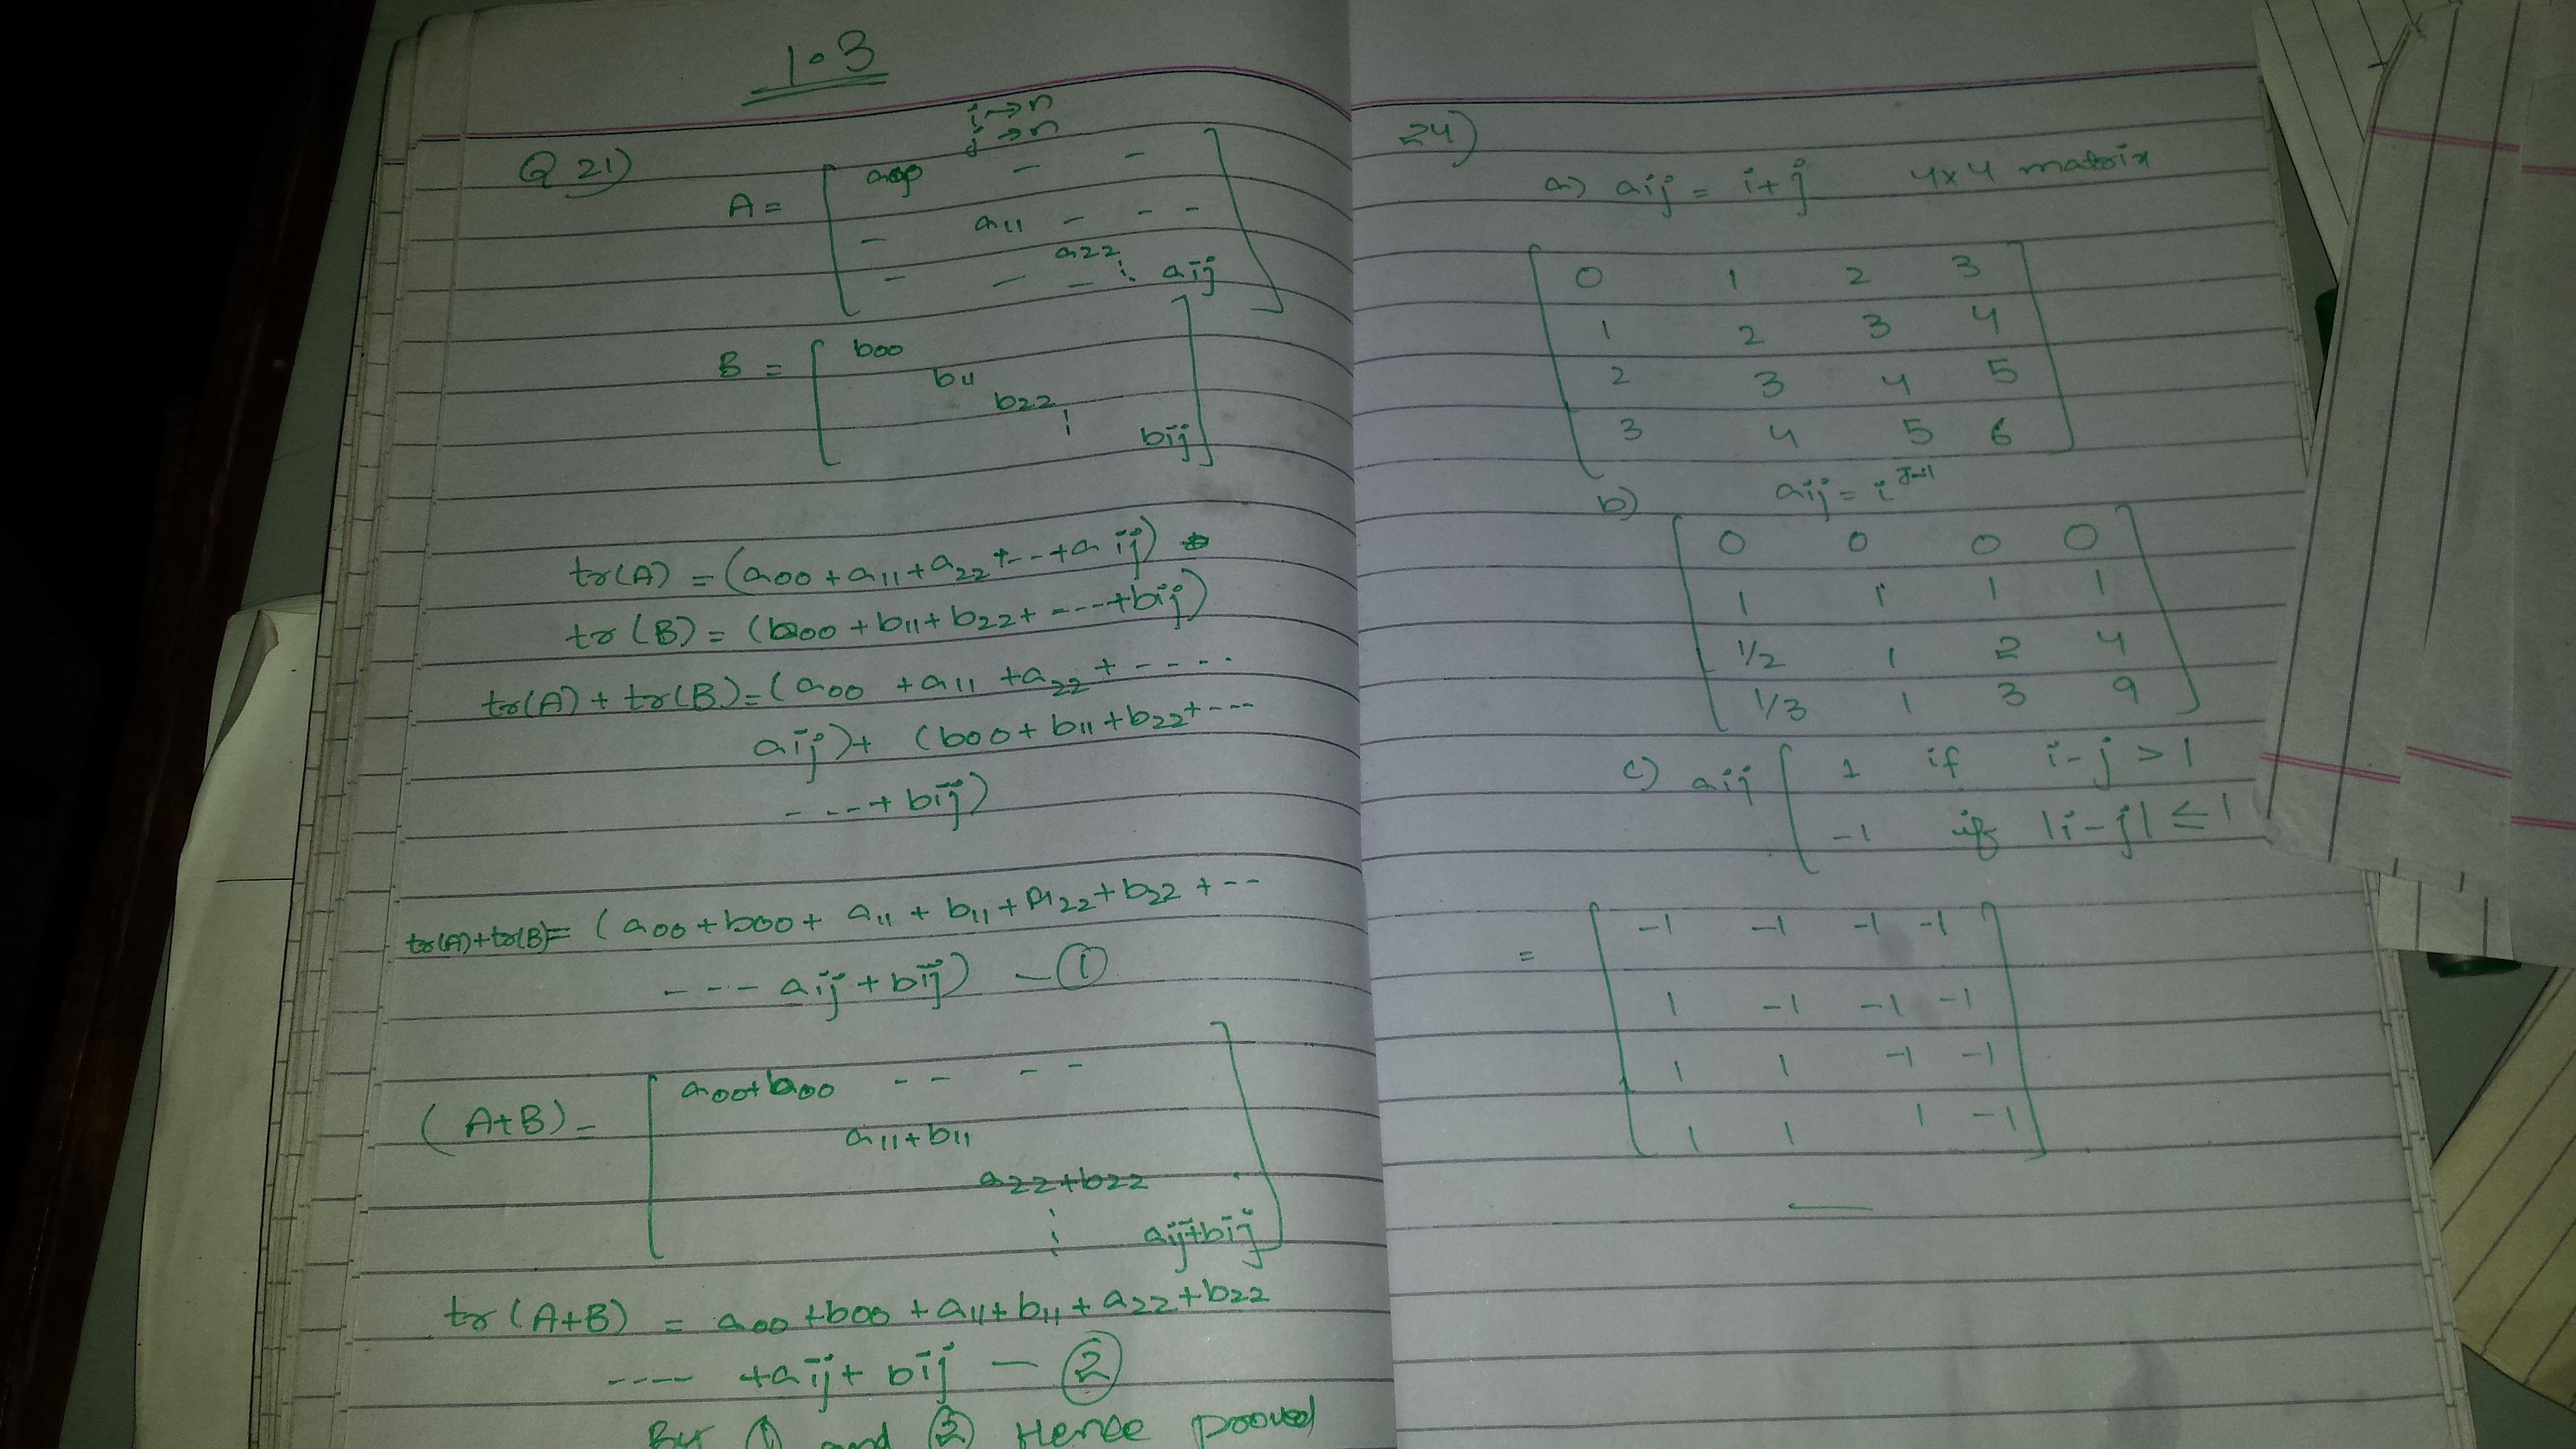 1.3
i→n
j→n
Q 21)
A = [ a00 - -
- a11 - - -
a22
- - - ⋱ aij ]
B = [ b00
b11
b22
⋮
bij ]
tr(A) = (a00 + a11 + a22 + -- + a ij)
tr(B) = (b00 + b11 + b22 + ---- + bij)
tr(A) + tr(B) = (a00 + a11 + a22 + - - - -
aij) + (b00 + b11 + b22 + ---
- --- + bij)
tr(A)+tr(B)= (a00 + b00 + a11 + b11 + a22 + b22 + --
- - - aij + bij) — ①
(A+B) = [ a00+b00 - - - -
a11+b11
a22+b22
⋮ aij+bij ]
tr (A+B) = a00 + b00 + a11 + b11 + a22 + b22
---- + aij + bij — ②
By ① and ② Hence prooved
24)
a) aij = i + j 4x4 matrix
[ 0 1 2 3
1 2 3 4
2 3 4 5
3 4 5 6 ]
b) aij = i^j-1
[ 0 0 0 0
1 1 1 1
1/2 1 2 4
1/3 1 3 9 ]
c) aij [ 1 if i-j > 1
-1 if |i-j| ≤ 1
= [ -1 -1 -1 -1
1 -1 -1 -1
1 1 -1 -1
1 1 1 -1 ]